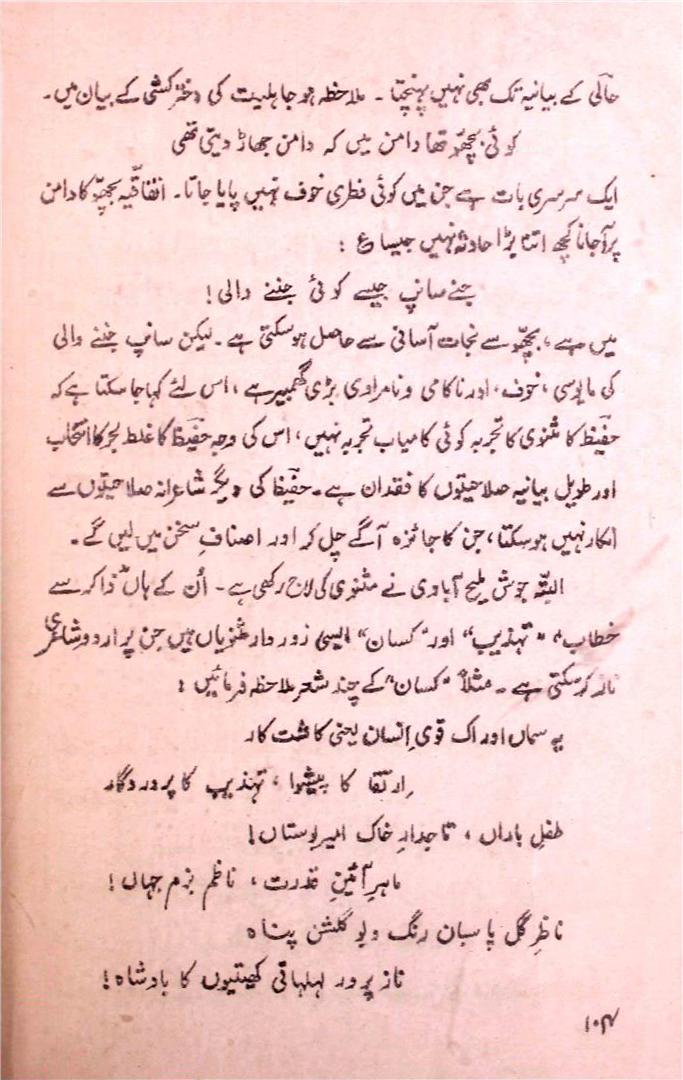 حالؔی کے بیانیہ تک بھی نہیں پہنچتا ۔ ملاحظہ ہو جاہلیت کی دختر کشی کے بیان میں۔
کوئی بچھّو تھا دامن میں کہ دامن جھاڑ دیتی تھی
ایک سرسری بات ہے جن میں کوئی فطری خوف نہیں پایا جاتا۔ اتفاقیہ بچھّو کا دامن
پر آجانا کچھ اتنا بڑا حادثہ نہیں جیسا ع :
جنے سانپ جیسے کوئی جننے والی !
میں ہے، بچھّو سے نجات آسانی سے حاصل ہوسکتی ہے ۔ لیکن سانپ جننے والی
کی مایوسی، خوف، اور ناکامی و نامرادی بڑی گھمبیر ہے، اس لئے کہا جاسکتا ہے کہ
حفیؔظ کا مثنوی کا تجربہ کوئی کامیاب تجربہ نہیں، اس کی وجہ حفیؔظ کا غلط بحر کا انتخاب
اور طویل بیانیہ صلاحیتوں کا فقدان ہے ۔ حفیؔظ کی دیگر شاعرانہ صلاحیتوں سے
انکار نہیں ہوسکتا، جن کا جائزہ آگے چل کر اور اصنافِ سخن میں لیں گے ۔
البتّہ جوش ملیح آبادی نے مثنوی کی لاج رکھی ہے ۔ اُن کے ہاں "ذاکر سے
خطاب"، "تہذیب" اور "کسان" ایسی زوردار مثنویاں ہیں جن پر اردو شاعری
ناز کرسکتی ہے ۔ مثلاً "کسان" کے چند شعر ملاحظہ فرمائیں :
یہ سماں اور اک قوی اِنسان یعنی کاشت کار
اِرتقا کا پیشوا ، تہذیب کا پروردگار
طفلِ باراں ، تاجدارِ خاک امیرِ بوستاں !
ماہرِ آئینِ قدرت ، ناظمِ بزمِ جہاں !
ناظرِ گل پاسبان رنگ و بو گلشن پناہ
ناز پرور لہلہاتی کھیتیوں کا بادشاہ !
۱۰۴